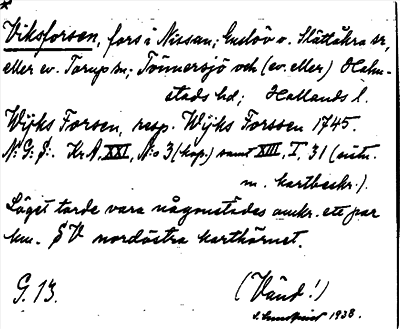 Viksforsen, fors i Nissan; Enslöv o. Slättåkra sr,
eller ev. Torup sn; Tönnersjö och (ev. eller) Halm-
stads hd; Hallands l.
Wijks Forsen, resp. Wijks Forssen 1745.
N: G: J: Kr. A. XXI, N:o 3 (kop.) samt XIII, I, 31 (utm.
m. kartbeskr.).
Läget torde vara någonstädes omkr. ett par
km. SV nordöstra karthörnet.
G. 13. (Vänd!)
1938.